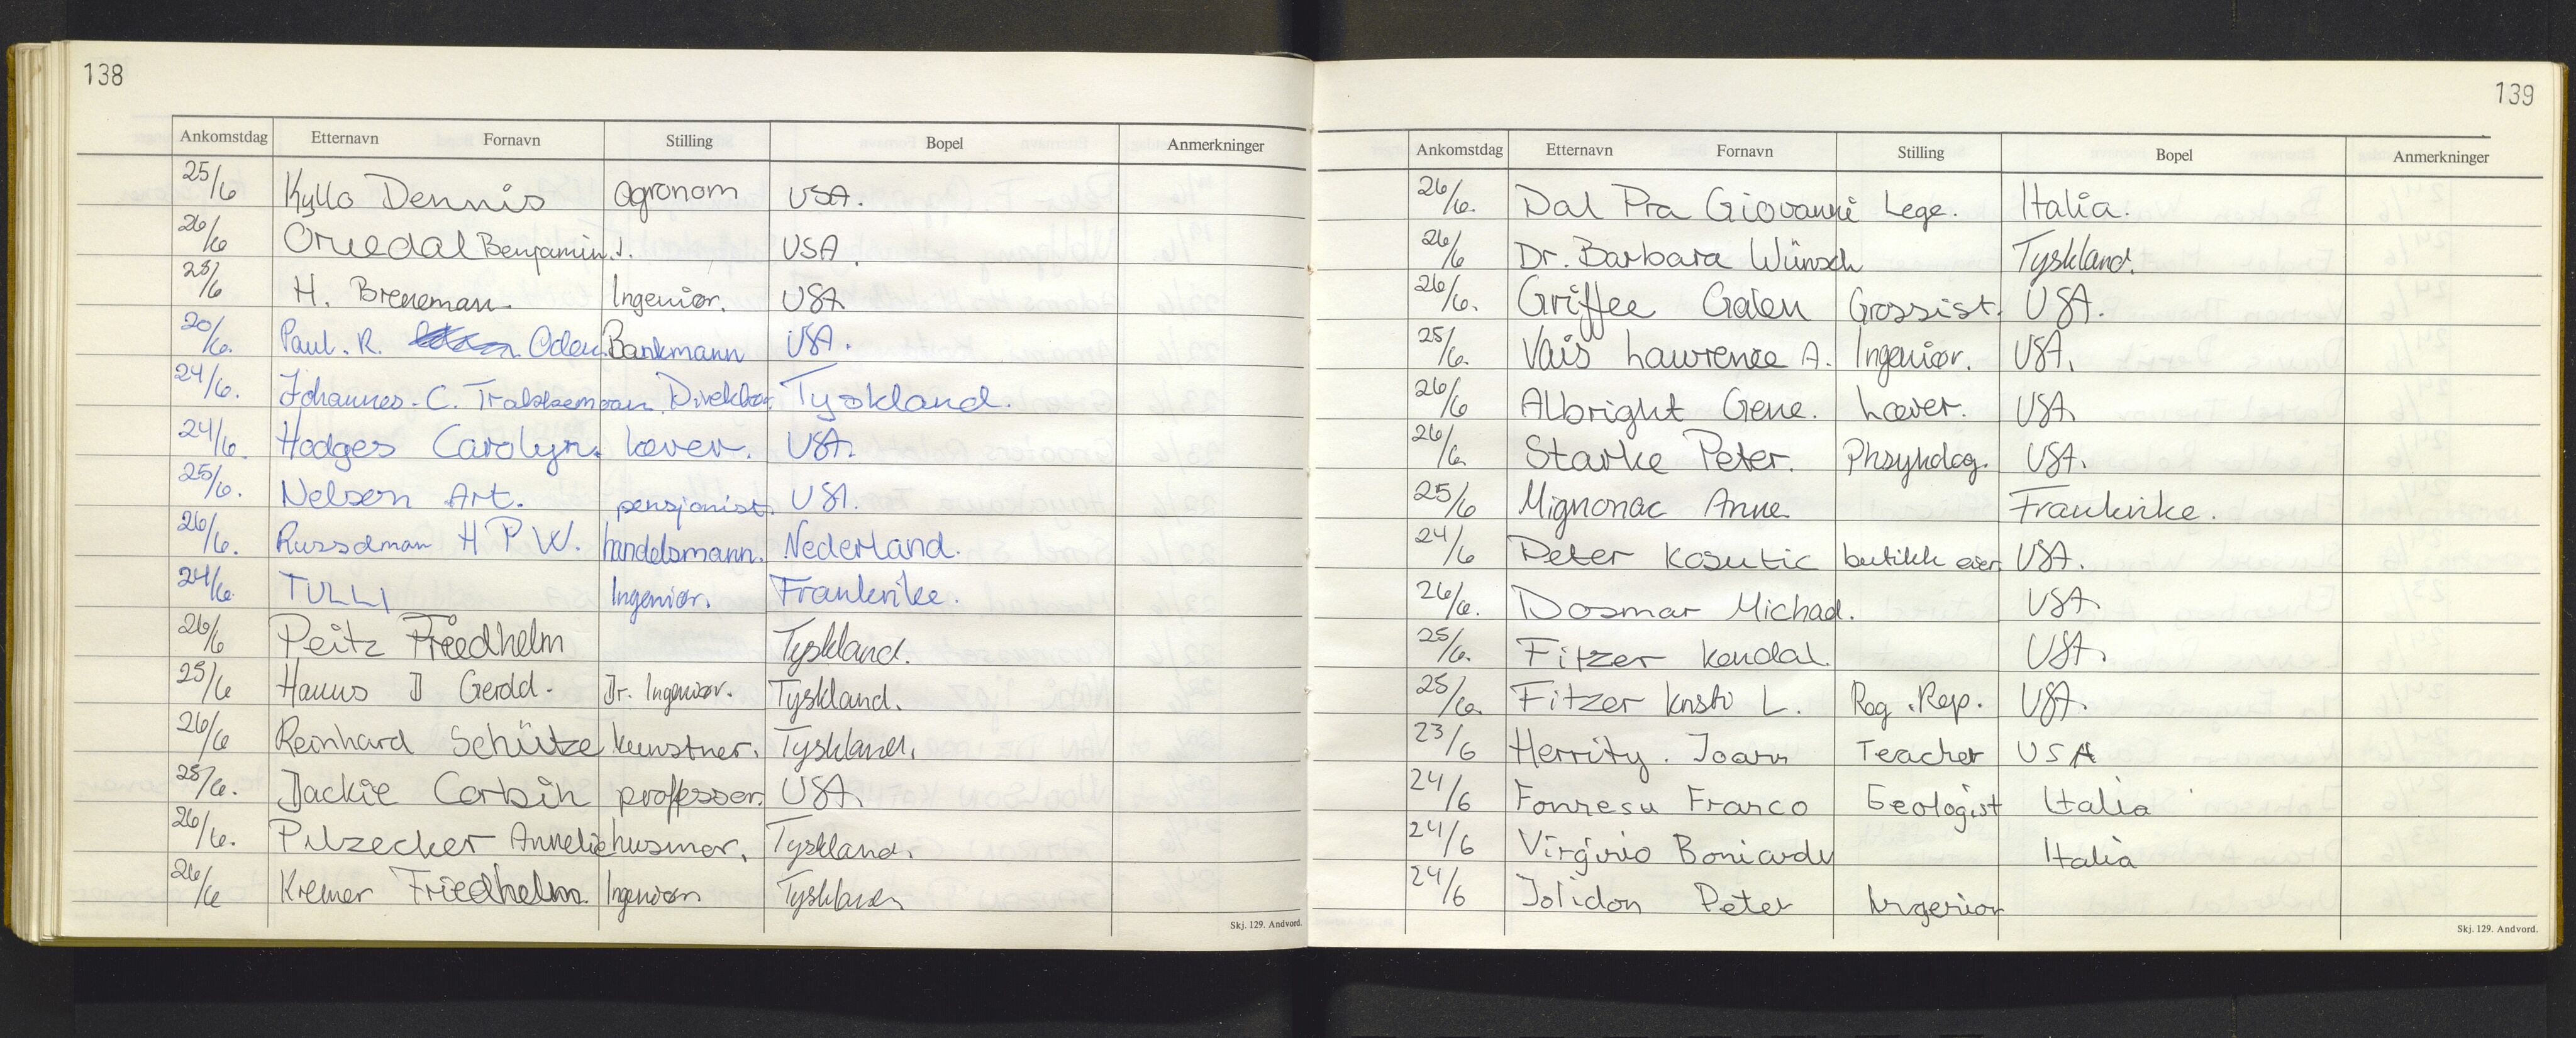 138
Ankomstdag Etternavn Fornavn Stilling Bopel Anmerkninger
25/6 Kyllo Dennis agronom USA.
26/6 Benjamin. J. USA.
25/6 H. Breneman. Ingeniør. USA
20/6. Paul. R. Oden. Bankmann USA.
24/6. Johannes. C. Direktør. Tyskland.
24/6. Hodges Carolyn. lærer. USA.
25/6. Nelsen Art. pensjonist. USA.
26/6. H P W. handelsmann. Nederland.
24/6. TULLI Ingeniør. Frankrike.
26/6 Peitz Friedhelm Tyskland.
25/6 Hanns D Gerdd. Dr. Ingeniør. Tyskland.
26/6 Reinhard Schütze kunstner. Tyskland.
25/6. Jackie Corbin professor. USA.
26/6. Pilzecker Annelie husmor. Tyskland.
26/6 Kremer Friedhelm. Ingeniør Tyskland
Skj. 129. Andvord.
139
Ankomstdag Etternavn Fornavn Stilling Bopel Anmerkninger
26/6. Dal Pra Giovanni Lege. Italia.
26/6 Dr. Barbara Wünsch Tyskland.
26/6. Griffee Galen Grossist. USA.
25/6. Vais Lawrence A. Ingeniør. USA.
26/6 Albright Gene. Lærer. USA
26/6. Starke Peter. Phsykolog. USA.
25/6 Mignonac Anne Frankrike.
24/6 Peter Kosutic butikk eier. USA.
26/6. Dosmar Michael. USA
25/6. Fitzer Kendal. USA.
25/6. Fitzer Kristi L. Reg. Rep. USA.
23/6 Herrity. Joann Teacher USA
24/6 Fonresu Franco Geologist Italia
24/6 Virginio Boniardy Italia
24/6 Jolidon Peter Ingeniør
Skj. 129. Andvord.